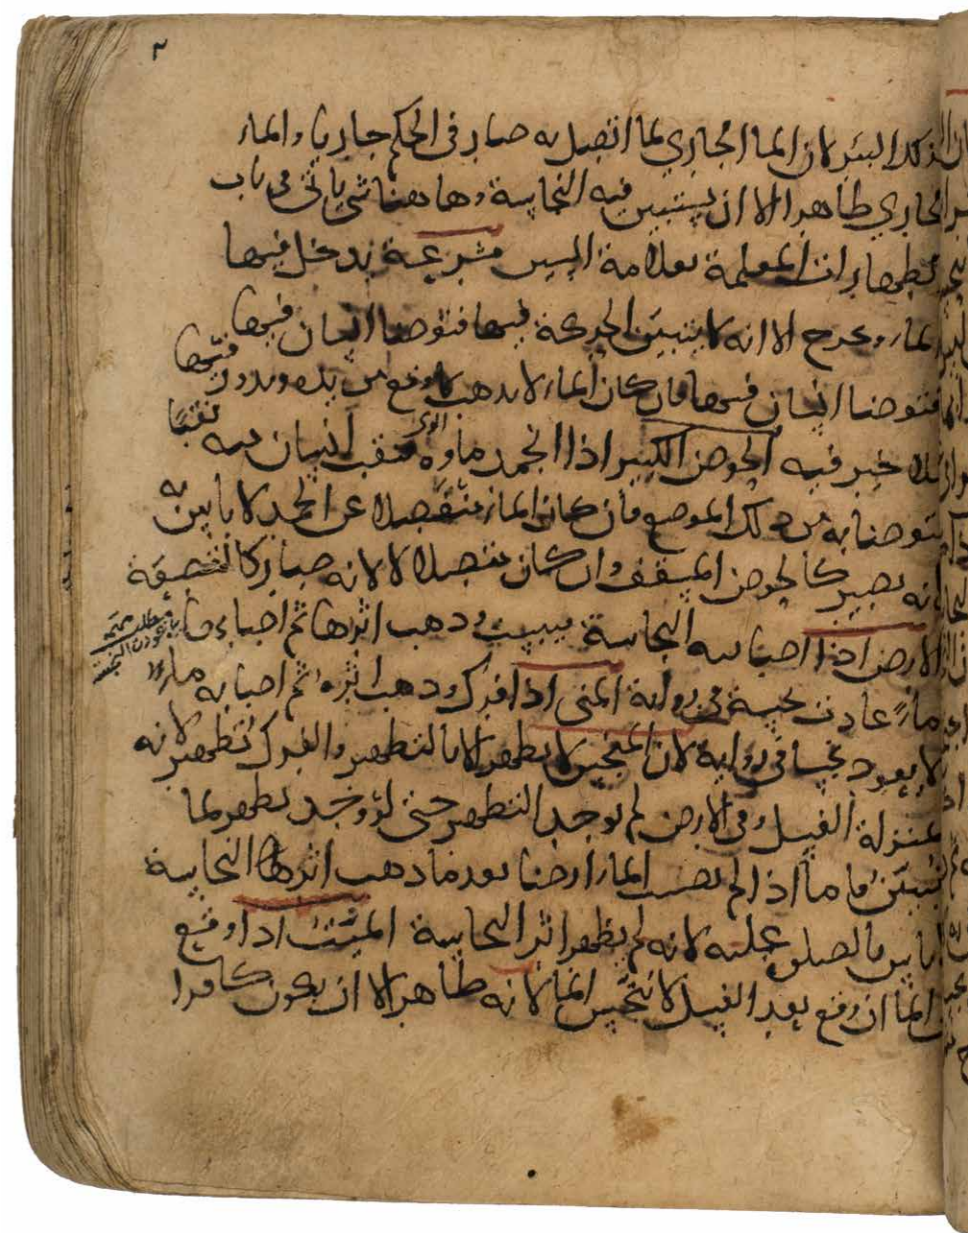 ٢
كذا البئر لان الماء الجاري لما اتصل به صار في الحكم جاريا والماء
الجاري طاهر الا ان يستبين فيه النجاسة وهاهنا شئ ياتي في باب
بعلامة السين مشرعة يدخل فيها
الماء ويخرج الا انه لا يتبين الحركة فيها فتوضا انسان فيها
فتوضا انسان فيها فان كان الماء لا يذهب من يده ويدور فيها
فلا خير فيه الحوض الكبير اذا انجمد ماؤه فنقب انسان فيه نقبا
يتوضا به من ذلك الموضع فان كان الماء منفصلا عن الجمد لا باس به
لانه يصير كالحوض المسقف وان كان متصلا لا لانه صار كالقصعة
الارض اذا اصابته النجاسة يبست وذهب اثرها ثم اصابها
ماء عادت نجسة في رواية المني اذا فرك وذهب اثره ثم اصابه ماء
لا يعود نجسا في رواية لان النجس لا يطهر الا بالتطهير والفرك تطهير لانه
بمنزلة الغسل وفي الارض لم يوجد التطهير حتى لو وجد يطهر لما
نبين فاما اذا لم يصب الماء ارضا بعد ما ذهب اثرها النجاسة
لا باس بالصلوة عليه لانه لم يظهر اثر النجاسة الميت اذا وقع
في الماء ان وقع بعد الغسل لا ينجس الماء لانه طاهر الا ان يكون كافرا